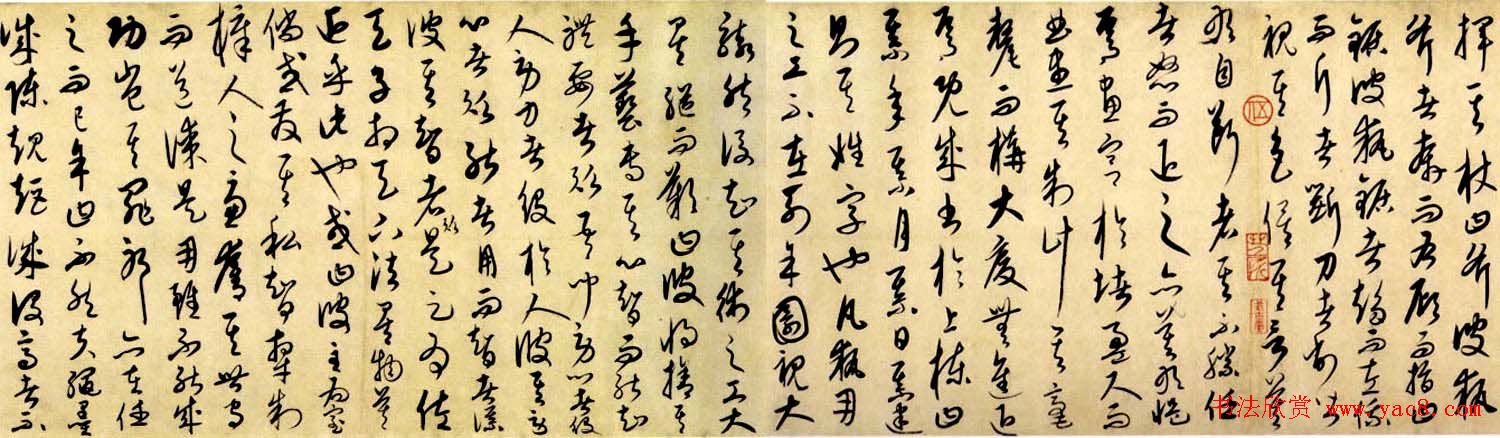 揮其杖曰斧彼執
斧者奔而右顧而指曰
鋸彼執鋸者趨而左俄
而斤者斲刀者削皆
視其色俟其言莫
敢自斷者其不勝任
者怒而退之亦莫敢慍
焉畫宮於堵盈尺而
曲盡其制計其毫
釐而構大廈無進退
焉既成書於上棟曰
某年某月某日某建
則其姓字也凡執用
之工不在列余圜視大
駭然後知其術之工大
矣繼而歎曰彼將捨其
手藝專其心智而能知
體要者歟吾聞勞心者役
人勞力者役於人彼其勞
心者歟能者用而智者謀
彼其智者歟是足為佐
天子相天下法矣物莫
近乎此也或曰彼主為室
倘或發其私智牽制
梓人之慮奪其世守
而道謀是用雖不能成
功豈其罪耶亦在任
之而已余曰不然夫繩墨
誠陳規矩誠設高者不
书法欣赏 www.yac8.com